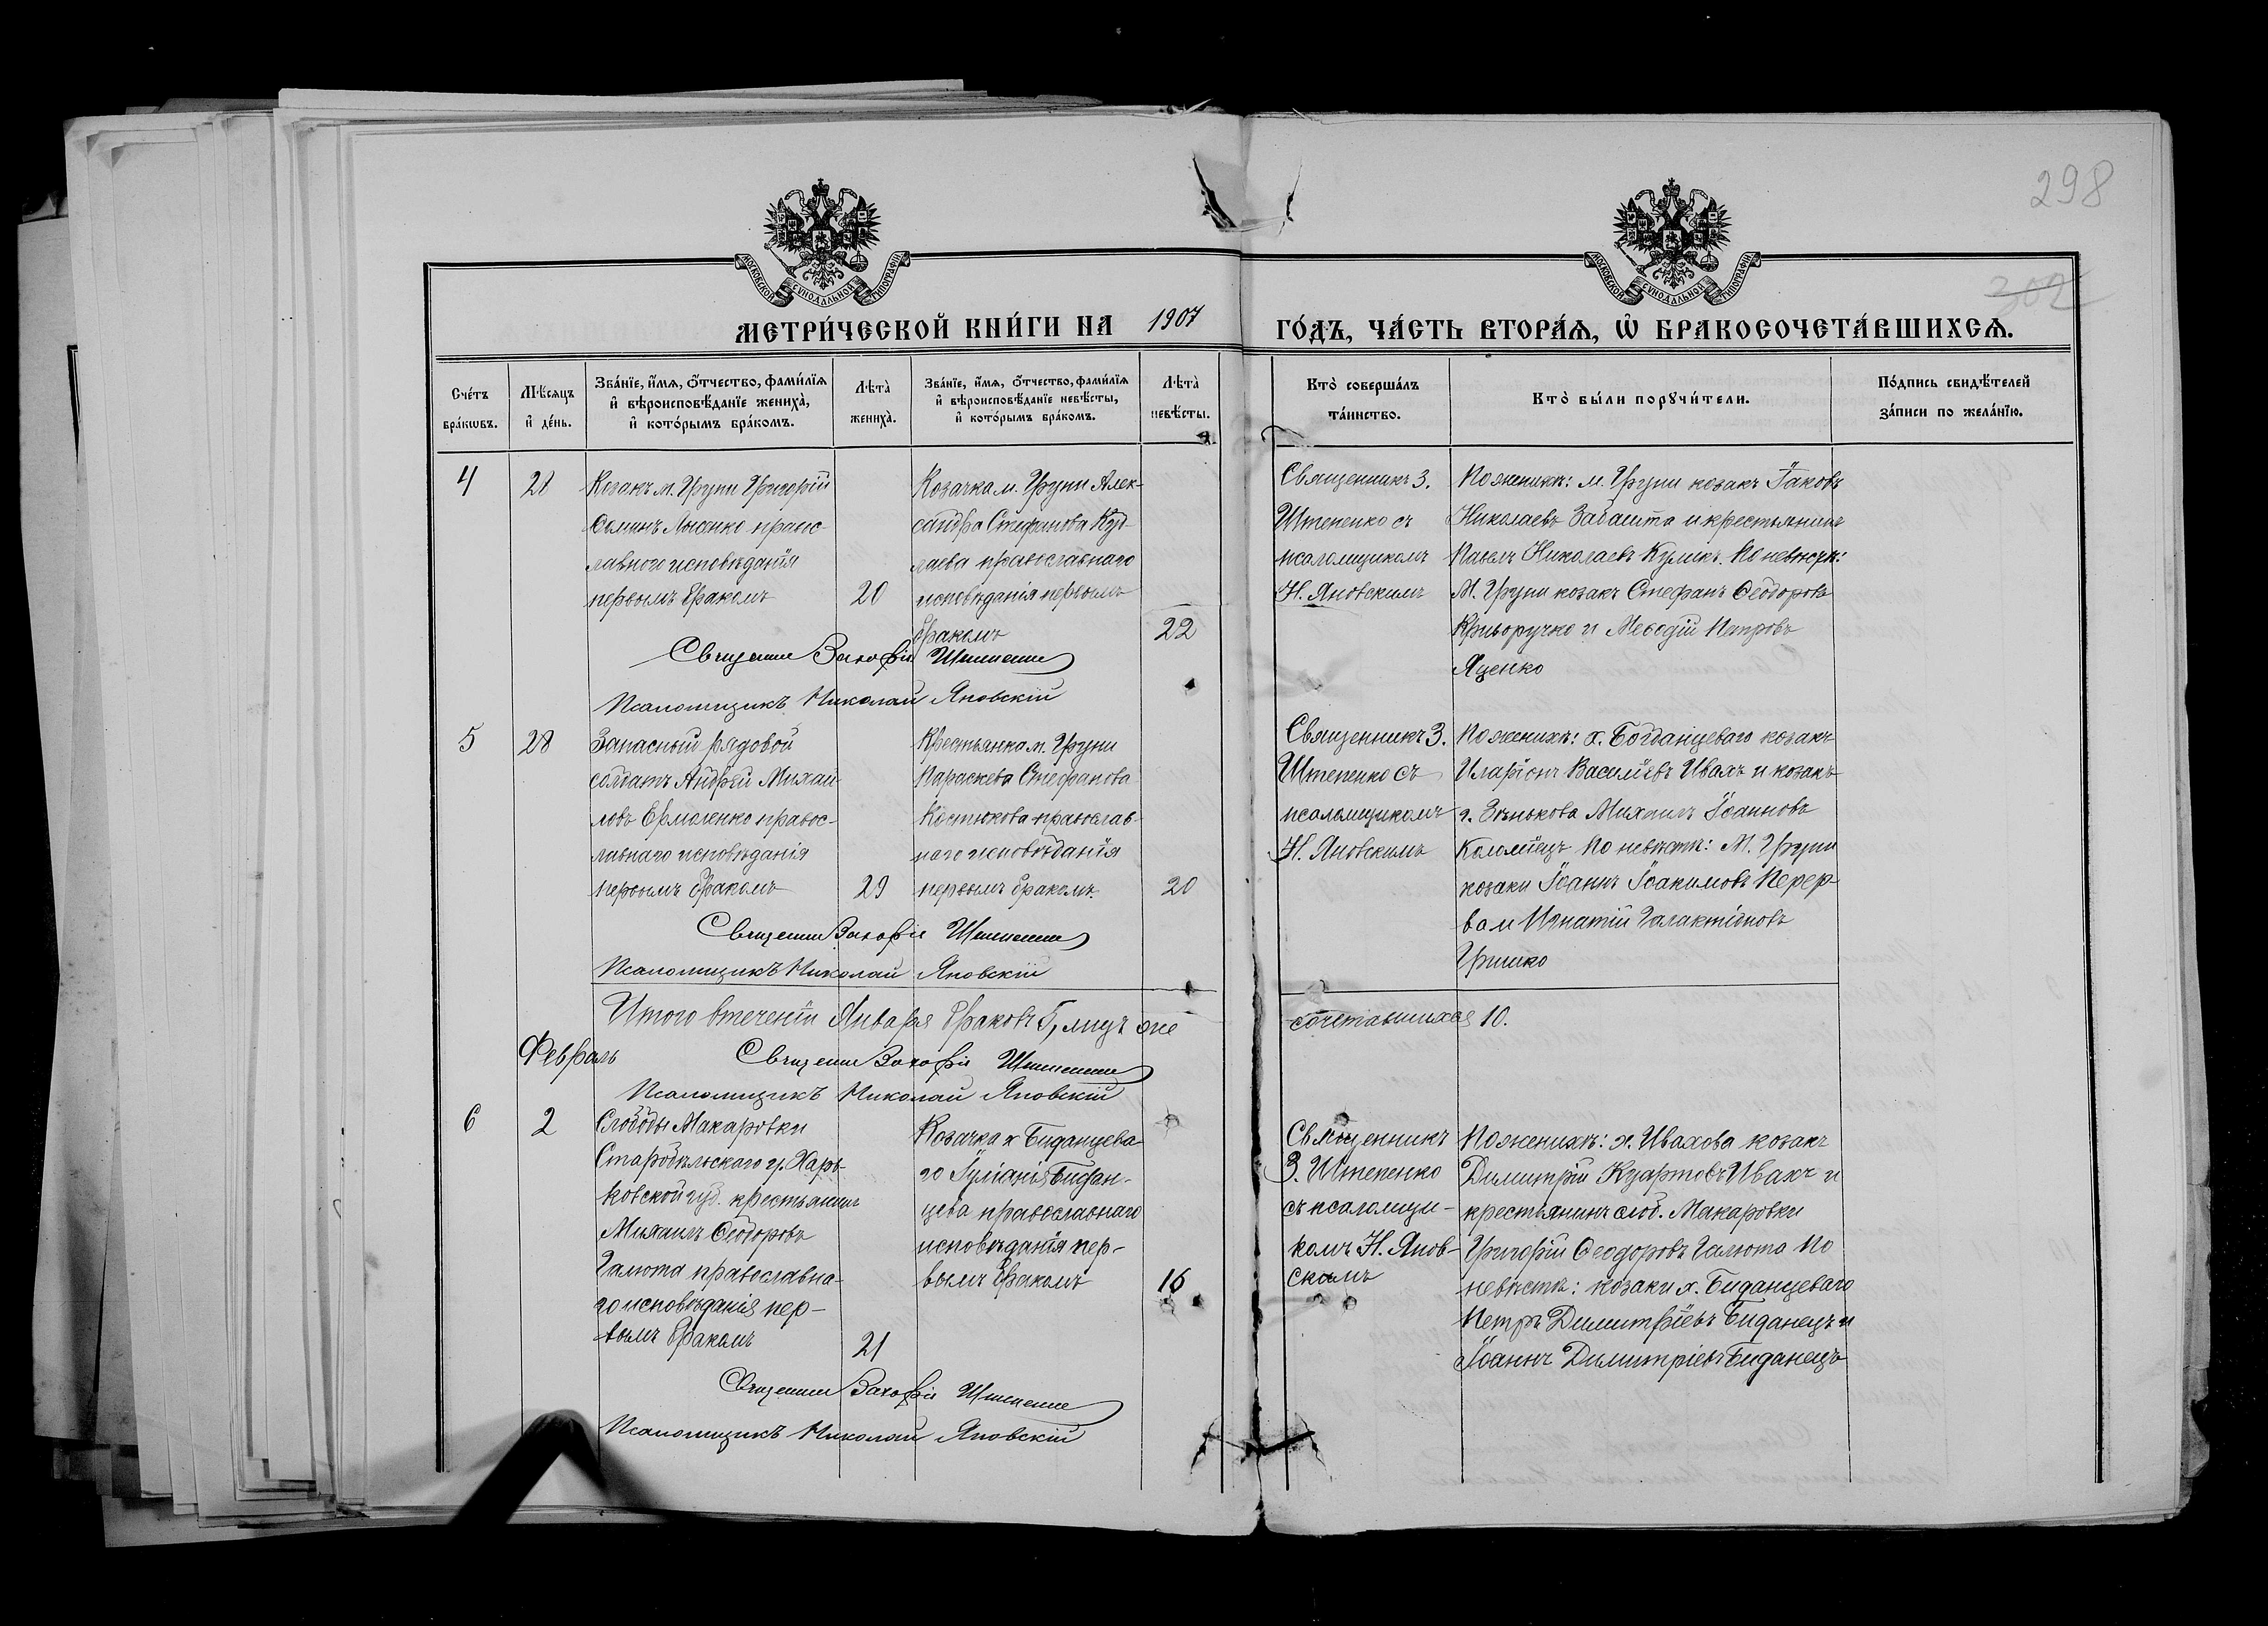 298
302
МОСКОВСКОЙ СѴНОДАЛЬНОЙ ТИПОГРАФІИ
МОСКОВСКОЙ СѴНОДАЛЬНОЙ ТИПОГРАФІИ
МЕТРИ́ЧЕСКОЙ КНИ́ГИ НА 1907 ГО́ДЪ, ЧА́СТЬ ВТОРА́Ѧ, Ѽ БРАКОСОЧЕТА́ВШИХСѦ.
Сче́тъ
бра́кѡвъ.
Мѣ́сѧцъ
и҆ де́нь.
Зва́нїе, и҆́мѧ, ѻ҆́тчество, фами́лїѧ
и҆ вѣроисповѣ́данїе жениха̀,
и҆ кото́рымъ бра́комъ.
Лѣта̀
жениха̀.
Зва́нїе, и҆́мѧ, ѻ҆́тчество, фами́лїѧ
и҆ вѣроисповѣ́данїе невѣ́сты,
и҆ кото́рымъ бра́комъ.
Лѣта̀
невѣ́сты.
Кто̀ соверша́лъ
та́инство.
Кто̀ бы́ли порꙋчи́тели.
По́дпись свидѣ́телей
за́писи по жела́нїю.
4
28
Козакъ м. Груни Григорій
Ѳоминъ Лысенко правос-
лавного исповѣданія
первымъ бракомъ
20
Козачка м. Груни Алек-
сандра Стефанова
православнаго
исповѣданія первымъ
бракомъ
22
Священникъ З.
Штепенко съ
псаломщикомъ
Н. Яновскимъ
По женихѣ: м. Груни козакъ Іаковъ
Николаевъ Забашта и крестьянинъ
Павелъ Николаевъ Куликъ. По невѣстѣ:
М. Груни козакъ Стефанъ Ѳеодоровъ
Криворучко и Меѳодій Петровъ
Яценко
Священник Захарій Штепенко
Псаломщикъ Николай Яновскій
5
28
Запасный рядовой
солдатъ Андрей Михаи-
ловъ Ермоленко правос-
лавнаго исповѣданія
первымъ бракомъ
29
Крестьянка м. Груни
Параскева Стефанова
Костюкова православ-
наго исповѣданія
первымъ бракомъ.
20
Священникъ З.
Штепенко съ
псаломщикомъ
Н. Яновскимъ
По женихѣ: х. Богданцеваго козакъ
Иларіонъ Василіевъ Ивахъ и козакъ
г. Зѣнькова Михаилъ Іоанновъ
Коломіецъ По невѣстѣ: М. Груни
козаки Іоаннъ Іоакимовъ Перер-
ва и Игнатій Галактіоновъ
Гришко
Священник Захарій Штепенко
Псаломщикъ Николай Яновскій
Итого втеченіи Января браковъ 5, лицъ же
сочетавшихся 10.
Февраль
Священник Захарій Штепенко
Псаломщикъ Николай Яновскій
6
2
Слободы Макаровки
Старобѣльскаго у. Харь-
ковской губ. крестьянинъ
Михаилъ Ѳеодоровъ
Галюта православна-
го исповѣданія пер-
вымъ бракомъ
21
Козачка х Биданцева-
го Іуліанія Бидан-
цева православнаго
исповѣданія пер-
вымъ бракомъ
16
Священникъ
З. Штепенко
съ псаломщи-
комъ Н. Янов-
скимъ
По женихѣ: х. Ивахова козакъ
Димитрій Ивахъ и
крестьянинъ слоб. Макаровки
Григорій Ѳеодоровъ Галюта По
невѣстѣ: козаки х. Биданцеваго
Петръ Димитріевъ Биданецъ и
Іоаннъ Димитріевъ Биданецъ
Священник Захарій Штепенко
Псаломщикъ Николай Яновскій